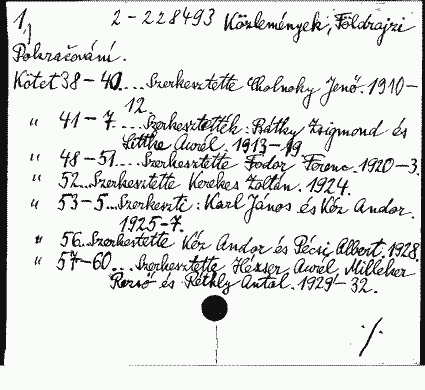 1,) 2-228493 Közlemények, Földrajzi
Pokračování.
Kötet 38-40....Szerkesztette Cholnoky Jenő. 1910-
12.
" 41-7....Szerkesztették: Bátky Zsigmond és
Littke Aurél. 1913-19
" 48-51...Szerkesztette Fodor Ferenc. 1920-3.
" 52...Szerkesztette Kerekes Zoltán. 1924.
" 53-5...Szerkeszti: Karl János és Kéz Andor.
1925-7.
" 56..Szerkestette Kéz Andor és Pécsi Albert. 1928.
" 57-60...Szerkesztette Hézser Aurél, Milleker
Rezső és Réthly Antal. 1929-32.
./.